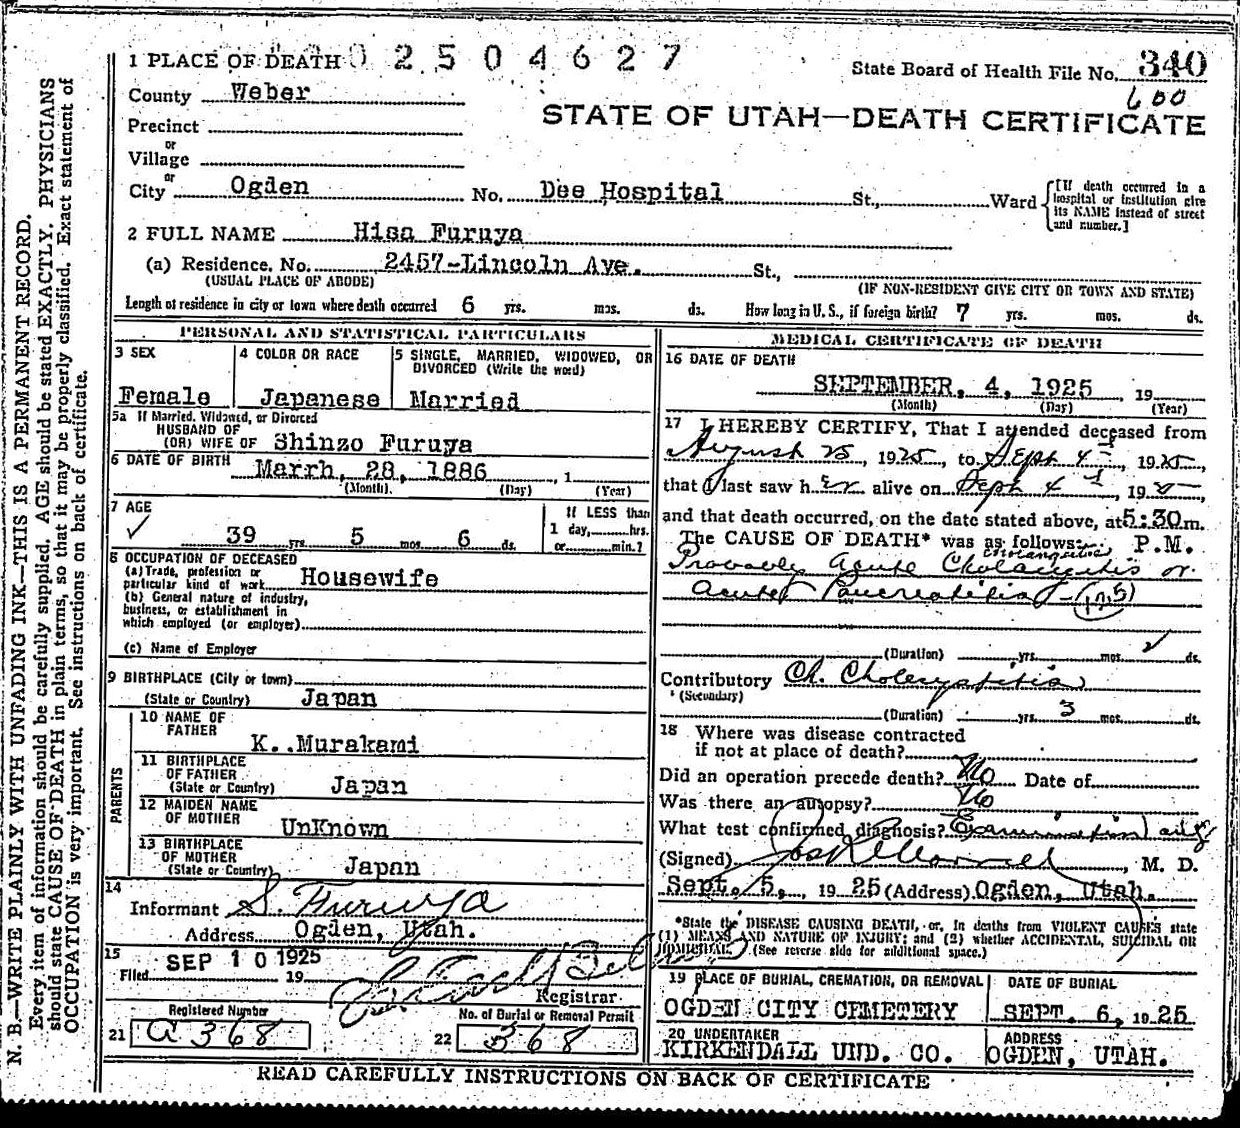 1 PLACE OF DEATH 0 2 5 0 4 6 2 7
State Board of Health File No. 340
600
County Weber
STATE OF UTAH—DEATH CERTIFICATE
Precinct
or
Village
or
City Ogden No. Dee Hospital St., Ward
[If death occurred in a hospital or institution give its NAME instead of street and number.]
2 FULL NAME Hisa Furuya
(a) Residence. No. 2457-Lincoln Ave. St.,
(USUAL PLACE OF ABODE) (IF NON-RESIDENT GIVE CITY OR TOWN AND STATE)
Length of residence in city or town where death occurred 6 yrs. mos. ds. How long in U. S., if foreign birth? 7 yrs. mos. ds.
PERSONAL AND STATISTICAL PARTICULARS
3 SEX
Female
4 COLOR OR RACE
Japanese
5 SINGLE, MARRIED, WIDOWED, OR
DIVORCED (Write the word)
Married
5a If Married, Widowed, or Divorced
HUSBAND OF
(OR) WIFE OF Shinzo Furuya
6 DATE OF BIRTH Marrh, 28, 1886, 1
(Month) (Day) (Year)
7 AGE
39 yrs. 5 mos. 6 ds.
If LESS than
1 day, hrs.
or min.?
8 OCCUPATION OF DECEASED
(a) Trade, profession or
particular kind of work Housewife
(b) General nature of industry,
business, or establishment in
which employed (or employer)
(c) Name of Employer
9 BIRTHPLACE (City or town)
(State or Country) Japan
PARENTS
10 NAME OF
FATHER
K. Murakami
11 BIRTHPLACE
OF FATHER
(State or Country) Japan
12 MAIDEN NAME
OF MOTHER
UnKnown
13 BIRTHPLACE
OF MOTHER
(State or Country) Japan
14
Informant S. Furuya
Address Ogden, Utah.
15
Filed SEP 10 1925 19
Registrar
Registered Number
21 a 368
No. of Burial or Removal Permit
22 368
MEDICAL CERTIFICATE OF DEATH
16 DATE OF DEATH
SEPTEMBER, 4, 1925, 19
(Month) (Day) (Year)
17 I HEREBY CERTIFY, That I attended deceased from
August 25, 1925, to Sept 4, 1925,
that I last saw her alive on Sept 4, 1925
and that death occurred, on the date stated above, at 5:30 m.
The CAUSE OF DEATH* was as follows: P.M.
cholangitis
Probably Acute Cholangitis or
Acute Pancreatitis (125)
(Duration) yrs. mos. ds.
Contributory Ch. Cholecystitis
(Secondary)
(Duration) yrs. 3 mos. ds.
18 Where was disease contracted
if not at place of death?
Did an operation precede death? No Date of
Was there an autopsy? No
What test confirmed diagnosis? Examination
(Signed) , M. D.
Sept. 5, 1925 (Address) Ogden, Utah.
*State the DISEASE CAUSING DEATH, or, in deaths from VIOLENT CAUSES state
(1) MEANS AND NATURE OF INJURY; and (2) whether ACCIDENTAL, SUICIDAL OR
HOMICIDAL. (See reverse side for additional space.)
19 PLACE OF BURIAL, CREMATION, OR REMOVAL
OGDEN CITY CEMETERY
DATE OF BURIAL
SEPT. 6, 1925
20 UNDERTAKER
KIRKENDALL UND. CO.
ADDRESS
OGDEN, UTAH.
READ CAREFULLY INSTRUCTIONS ON BACK OF CERTIFICATE
N. B.—WRITE PLAINLY WITH UNFADING INK—THIS IS A PERMANENT RECORD.
Every item of information should be carefully supplied. AGE should be stated EXACTLY. PHYSICIANS
should state CAUSE OF DEATH in plain terms, so that it may be properly classified. Exact statement of
OCCUPATION is very important. See instructions on back of certificate.